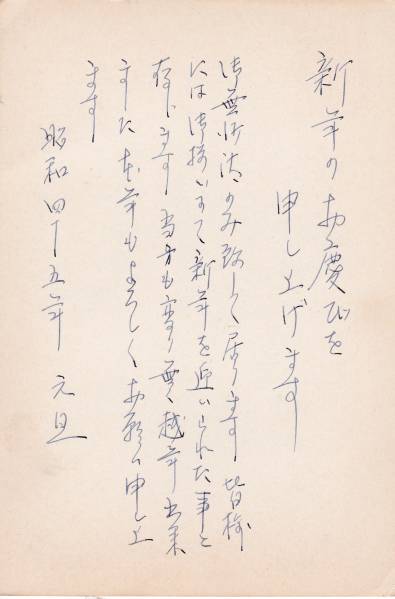 新年のお慶びを
申し上げます
御無沙汰のみ致して居ります 皆様
には御揃いにて新年を迎いられた事と
存じます 当方も変り無く越年出来
ました 本年もよろしくお願い申し上
ます
昭和四十五年 元旦